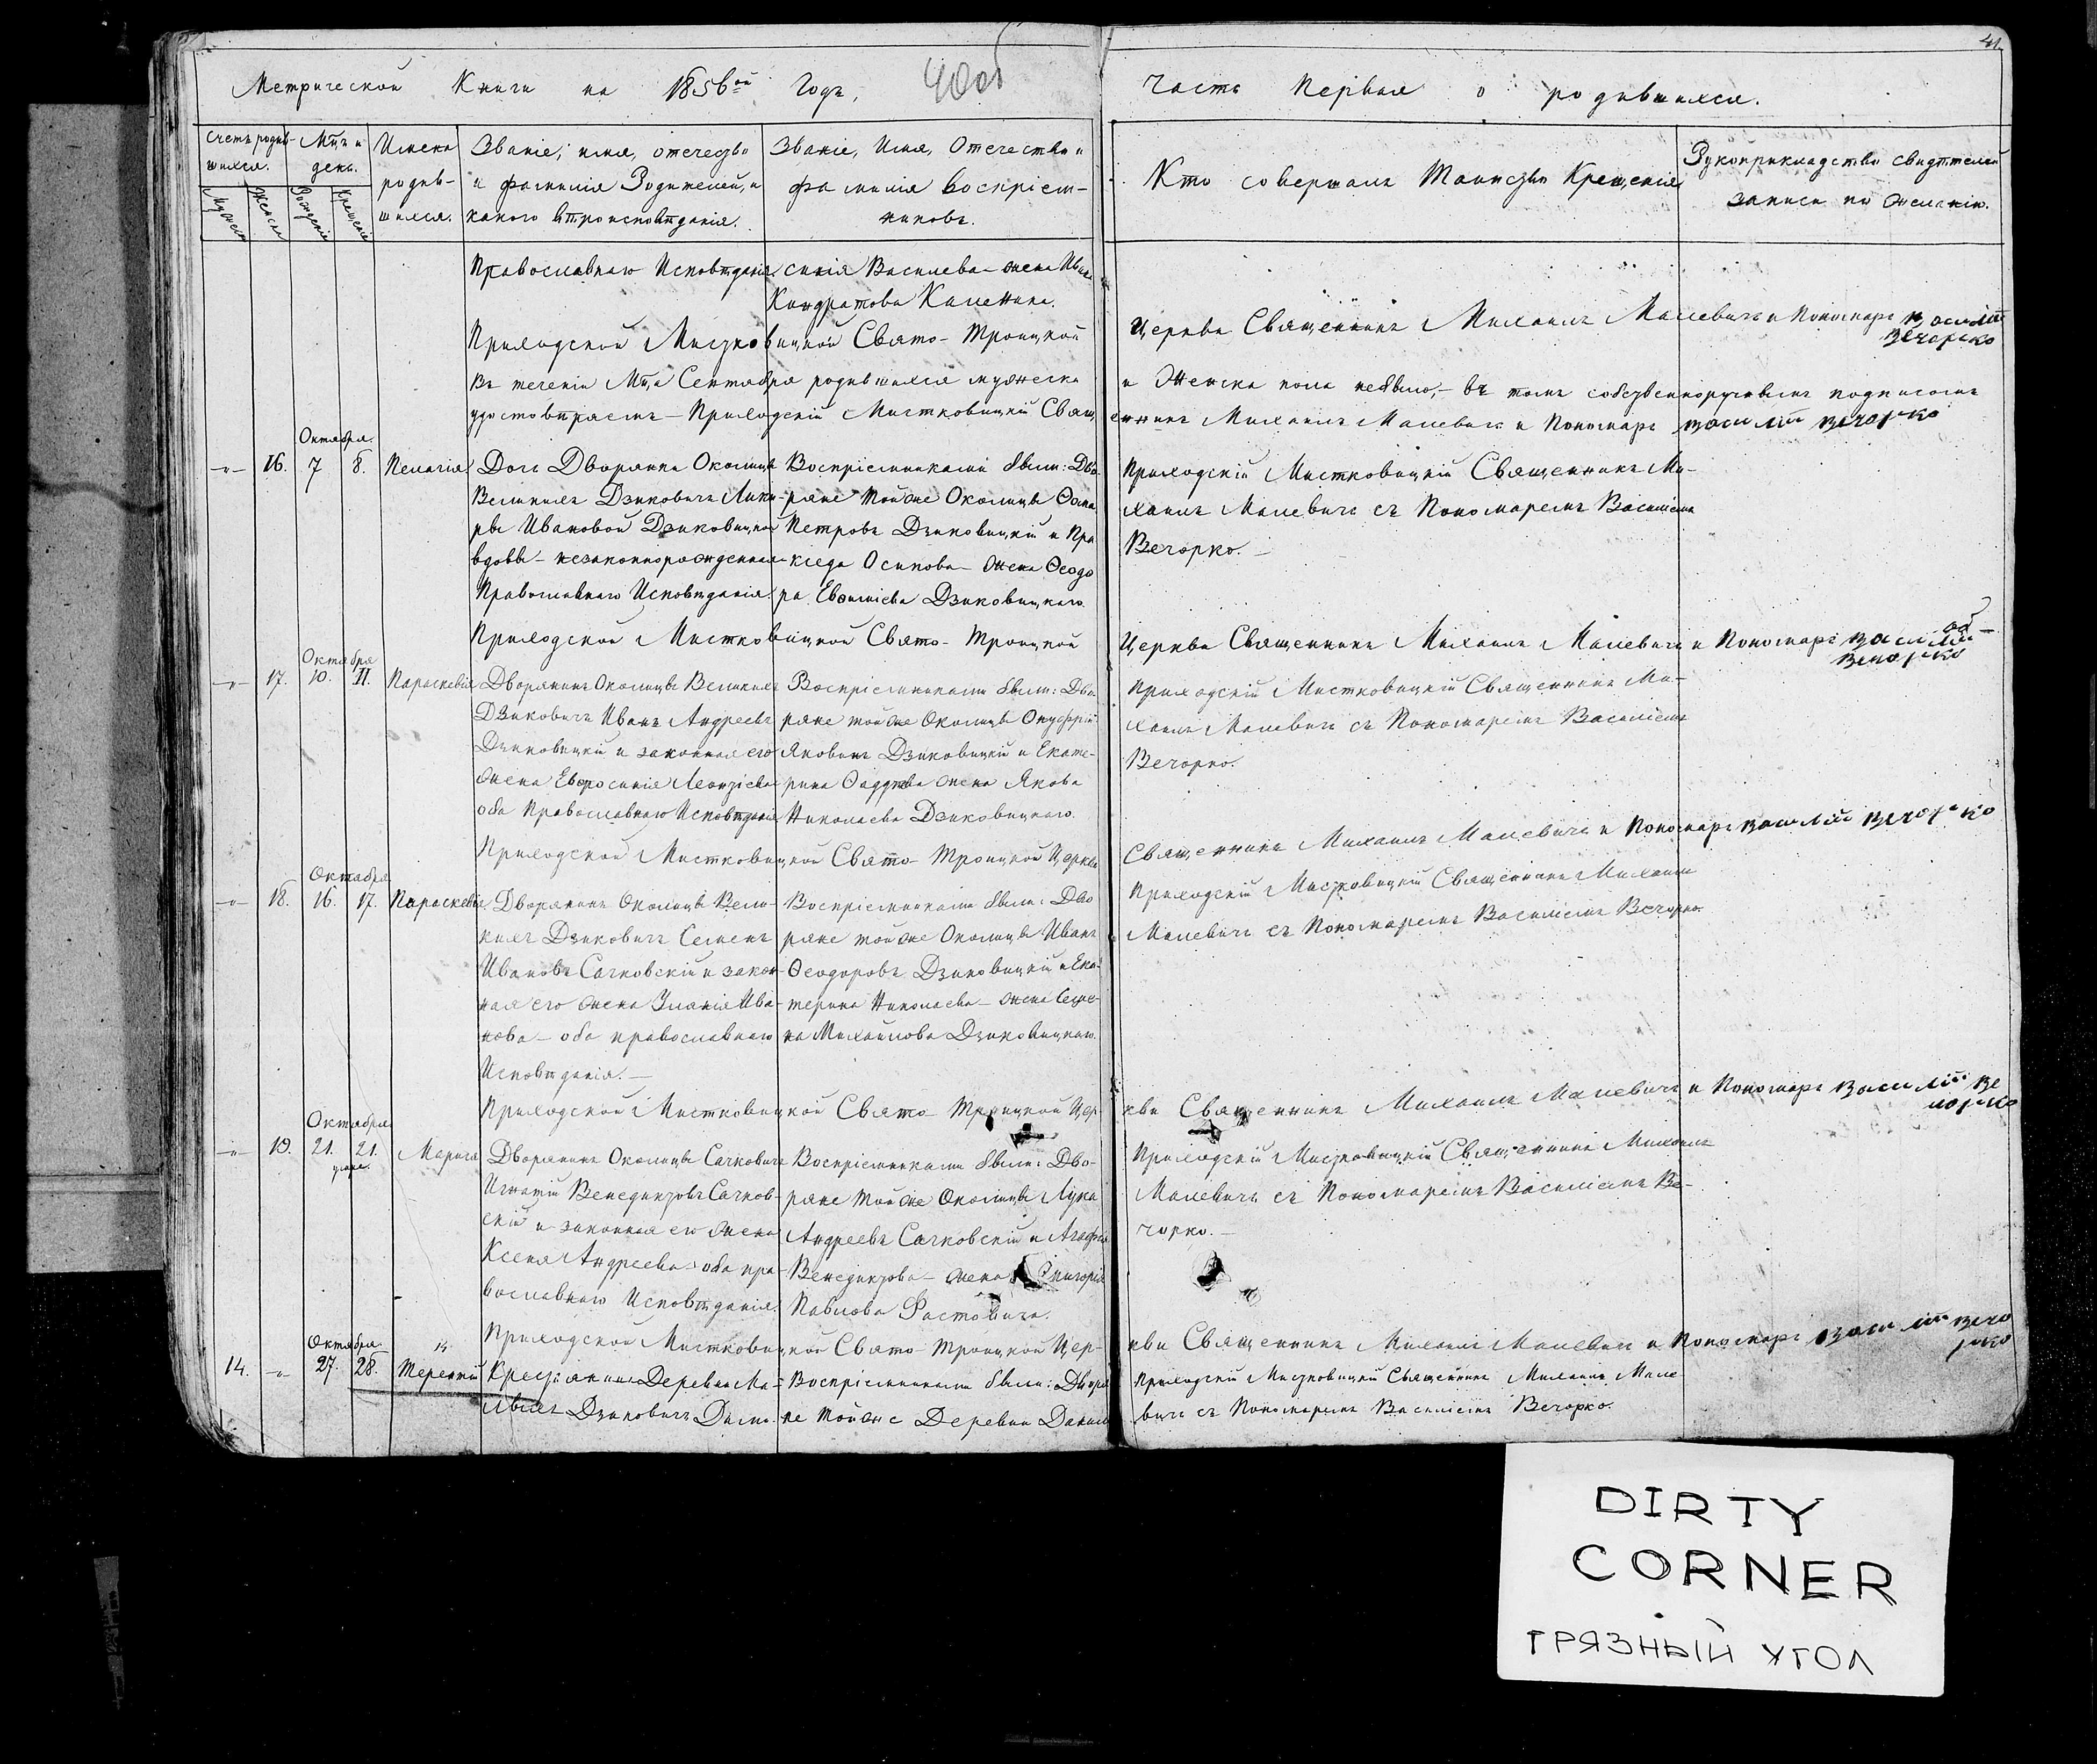 Метрической Книги на 1856ой Годъ,
40об
Часть Первая о родившихся.
41
Счетъ родив-
шихся.
Мужеска
Женска
Мцъ и
день.
Рожденія
Крещенія
Имена
родив-
шихся.
Званіе, имя, отечество
и фамилія Родителей, и
какого вѣроисповѣданія.
Званіе, Имя, Отечество и
фамилія воспріем-
никовъ.
Кто совершалъ Таинство Крещенія
Рукоприкладство свидѣтелей
записи по желанію.
Православнаго Исповѣданія
синія Василева - жена Ивана
Кондратова
Приходской Мистковицкой Свято-Троицкой Церкви Священникъ Михаилъ Малевичъ и Пономарь Василій
Вечорко
Въ теченіи Мца Сентября родившихся мужеска и Женска пола небыло, - въ томъ собственноручнымъ подписомъ
удостовѣряемъ - Приходскій Мистковицкій Священникъ Михаилъ Малевичъ и Пономарь Василій Вечорко
Октября.
-"- 16. 7 8. Пелагія
Дочь Дворянки Околицы
Великихъ Дзиковичъ
Ивановой Дзиковицкой
вдовы - незаконнорожденная
Православнаго Исповѣданія
Воспріемниками были: Дво-
ряне той же Околицы Ѳома
Петровъ Дзиковицкій и Пра-
кседа Осипова - жена Ѳеодо
ра Евѳиміева Дзиковицкаго
Приходскій Мистковицкій Священникъ Ми-
хаилъ Малевичъ съ Пономаремъ Василіемъ
Вечорко. -
Приходской Мистковицкой Свято-Троицкой Церкви Священникъ Михаилъ Малевичъ и Пономарь Василій
Вечорко
Октября
-"- 17. 10. 11. Параскевія
Дворянинъ Околицы Великихъ
Дзиковичъ Иванъ Андреевъ
Дзиковицкій и законная его
жена Евфросинія Леонтіева
оба Православнаго Исповѣданія
Воспріемниками были: Дво-
ряне той же Околицы Онуфрій
Яковинъ Дзиковицкій и Екате-
рина Ѳаддѣева жена Якова
Николаева Дзиковицкаго.
Приходскій Мистковицкій Священникъ Ми-
хаилъ Малевичъ съ Пономаремъ Василіемъ
Вечорко.
Приходской Мистковицкой Свято-Троицкой Церкви Священникъ Михаилъ Малевичъ и Пономарь Василій Вечорко
Октября
-"- 18. 16. 17. Параскевія
Дворянинъ Околицы Вели-
кихъ Дзиковичъ Семенъ
Ивановъ Сачковскій и закон-
ная его жена Уліанія Ива-
нова - оба православнаго
Исповѣданія. -
Воспріемниками были: Дво
ряне той же Околицы Иванъ
Ѳеодоровъ Дзиковицкій и Ека-
терина Николаева - жена Семе-
на Михаилова Дзиковицкаго.
Приходскій Мистковицкій Священникъ Михаилъ
Малевичъ съ Пономаремъ Василіемъ Вечорко.
Приходской Мистковицкой Свято-Троицкой Церкви Священникъ Михаилъ Малевичъ и Пономарь Василій Ве
чорко
Октября
-"- 19. 21. 21. Марія
Дворянинъ Околицы Сачковичъ
Игнатій Венедиктовъ Сачков-
скій и законная его жена
Ксенія Андреева - оба пра-
вославнаго Исповѣданія.
Воспріемниками были: Дво-
ряне той же Околицы Лука
Андреевъ Сачковскій и Агафія
Венедиктова - жена Григорія
Павлова Фастовича.
Приходскій Мистковицкій Священникъ Михаилъ
Малевичъ съ Пономаремъ Василіемъ Ве-
чорко. -
Приходской Мистковицкой Свято-Троицкой Церкви Священникъ Михаилъ Малевичъ и Пономарь Василій Вечо
рко
Октября
14. -"- 27. 28. Терентій
Крестьянинъ Деревни Ма-
лыхъ Дзиковичъ
Воспріемниками были: Дворя
не той же Деревни
Приходскій Мистковицкій Священникъ Михаилъ Мале
вичъ съ Пономаремъ Василіемъ Вечорко.
DIRTY
CORNER
ГРЯЗНЫЙ УГОЛ